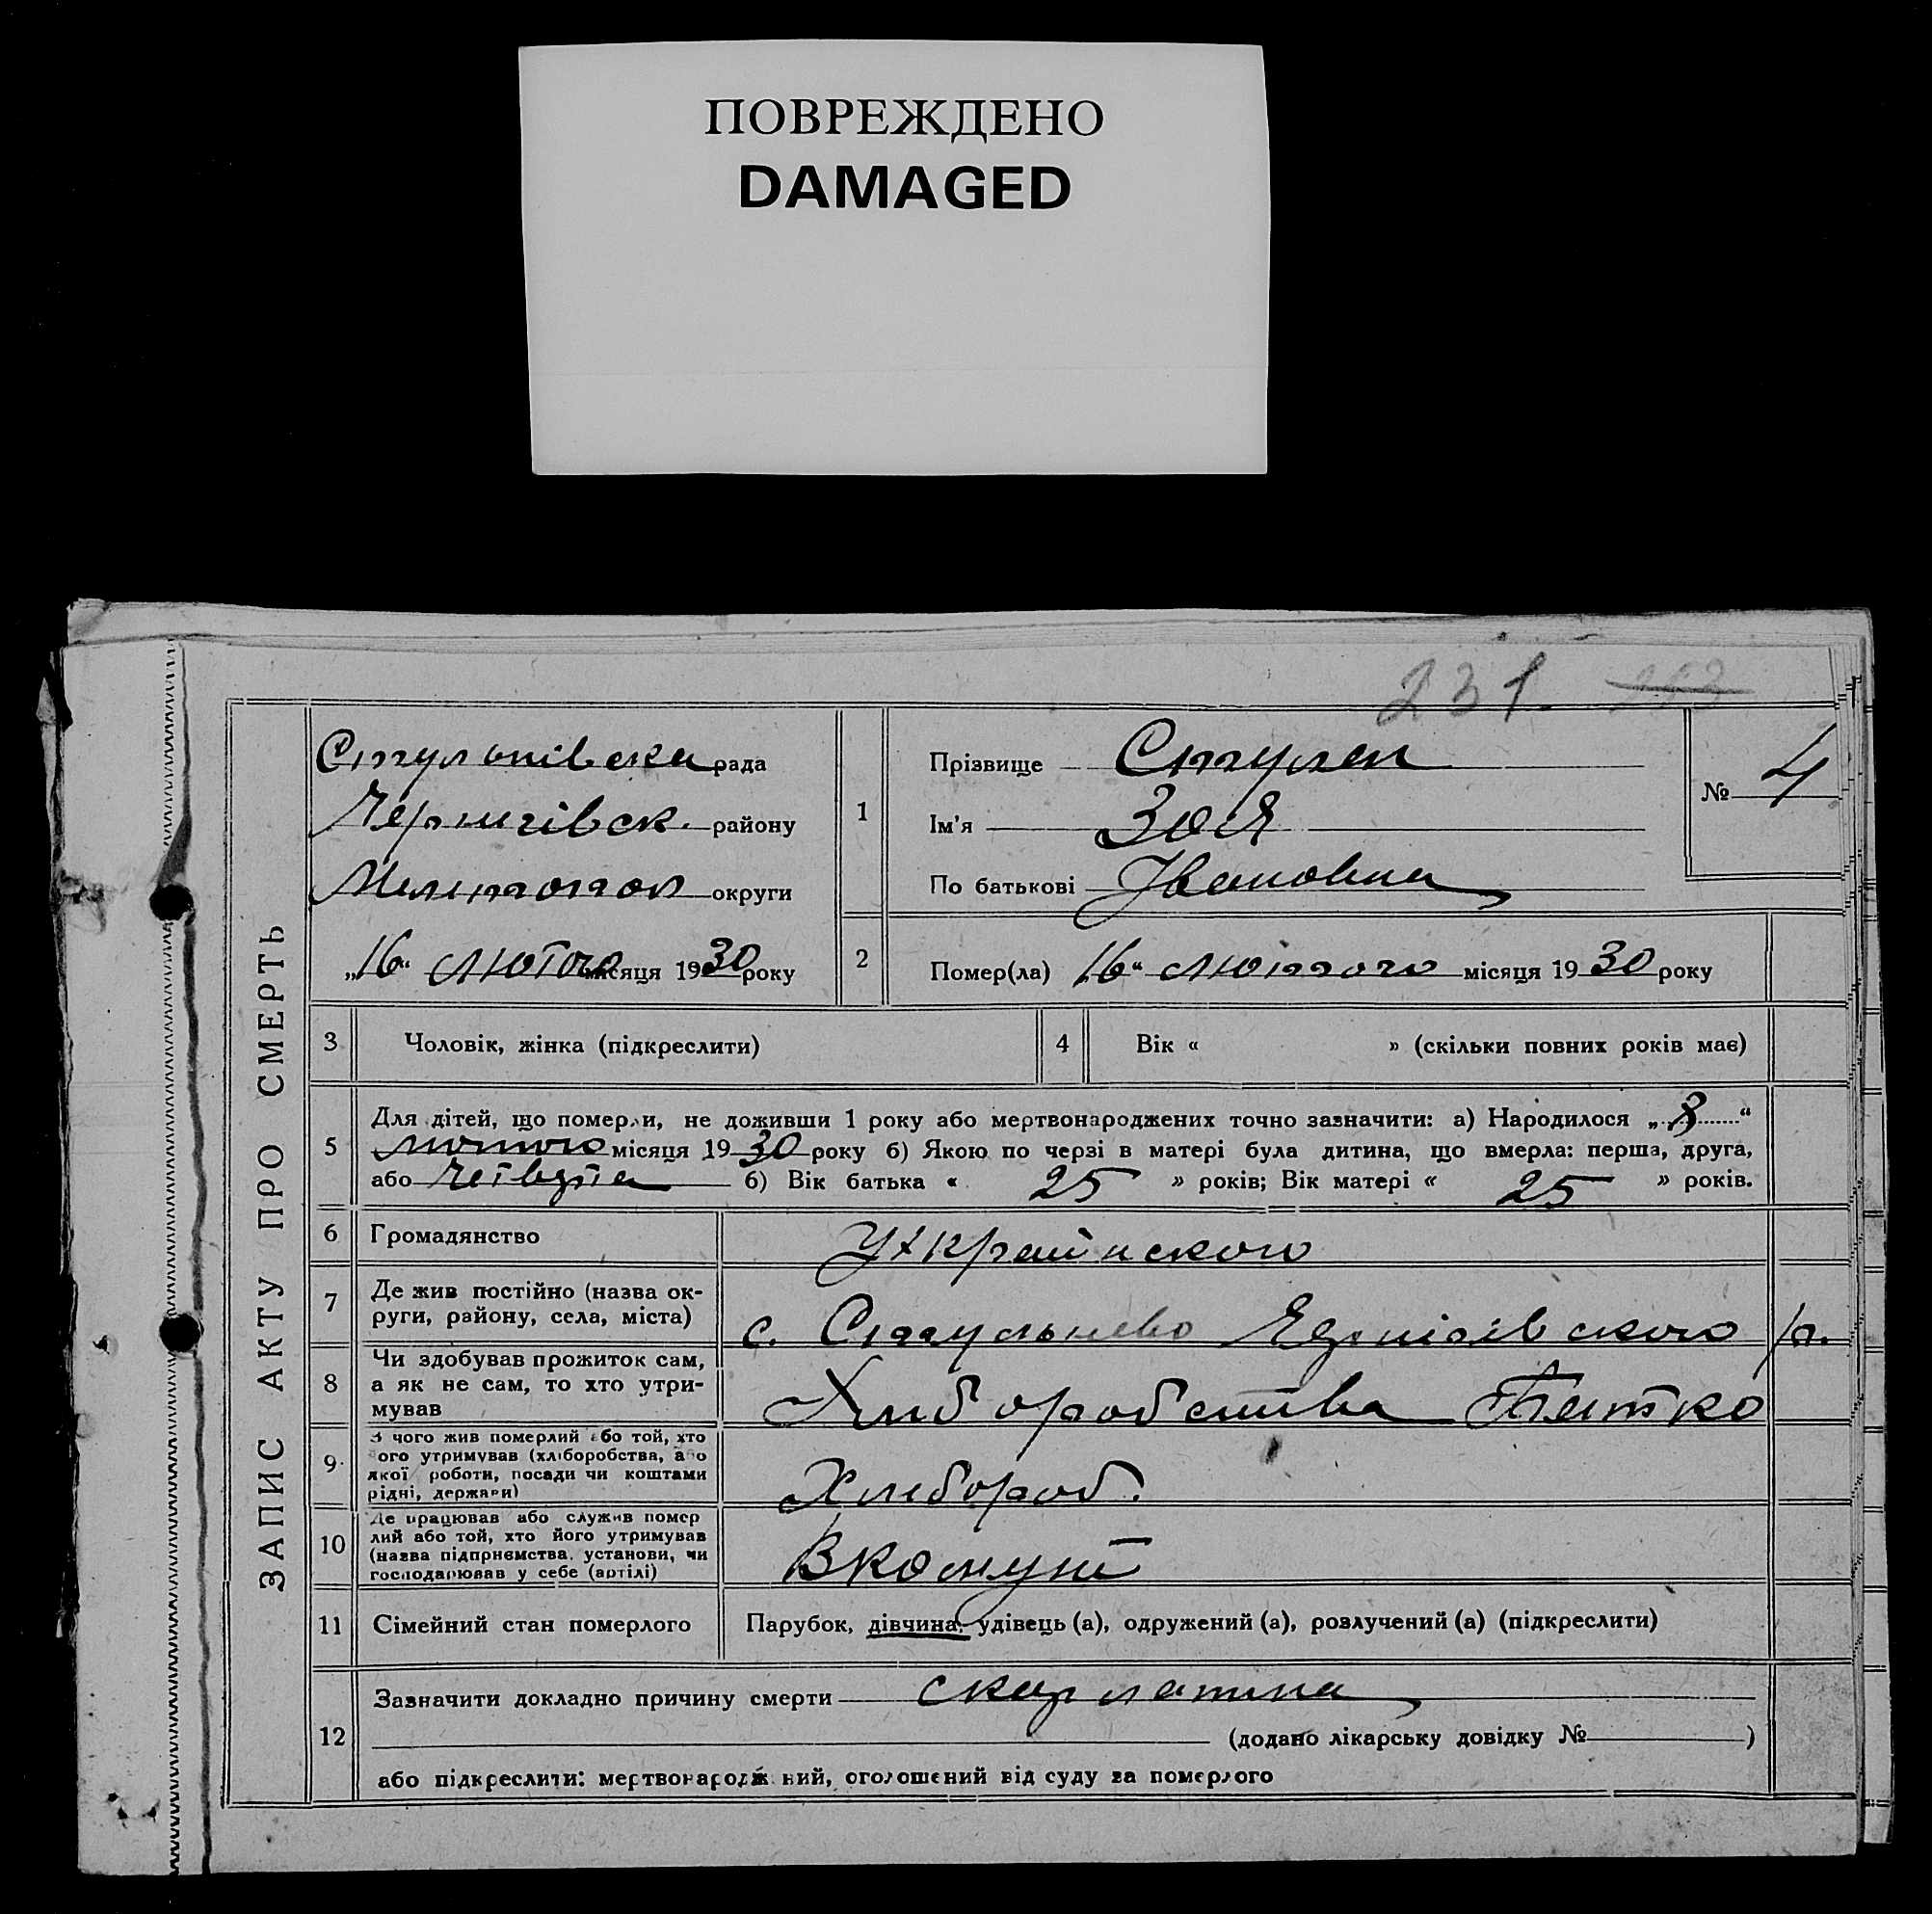 ПОВРЕЖДЕНО
DAMAGED
231
ЗАПИС АКТУ ПРО СМЕРТЬ
рада
Чернигівск. району
Мелитопол округи
„16“ лютого місяця 1930 року
1
Прізвище
Ім'я Зоя
По батькові Івановна
№ 4
2
Помер(ла) „16“ лютого місяця 1930 року
3
Чоловік, жінка (підкреслити)
4
Вік « » (скільки повних років має)
5
Для дітей, що померли, не доживши 1 року або мертвонароджених точно зазначити: а) Народилося „ “
лютого місяця 1930 року б) Якою по черзі в матері була дитина, що вмерла: перша, друга,
або б) Вік батька « 25 » років; Вік матері « 25 » років.
6
Громадянство
7
Де жив постійно (назва ок-
руги, району, села, міста)
с. р.
8
Чи здобував прожиток сам,
а як не сам, то хто утри-
мував
Хлиборобства Батко
9
З чого жив померлий або той, хто
його утримував (хліборобства, або
якої роботи, посади чи коштами
рідні, держави)
Хлебороб.
10
Де працював або служив помер
лий або той, хто його утримував
(назва підприємства, установи, чи
господарював у себе (артілі)
В комуні
11
Сімейний стан померлого
Парубок, дівчина, удівець (а), одружений (а), розлучений (а) (підкреслити)
12
Зазначити докладно причину смерти скарлатина
(додано лікарську довідку № )
або підкреслити: мертвонароджений, оголошений від суду за померлого